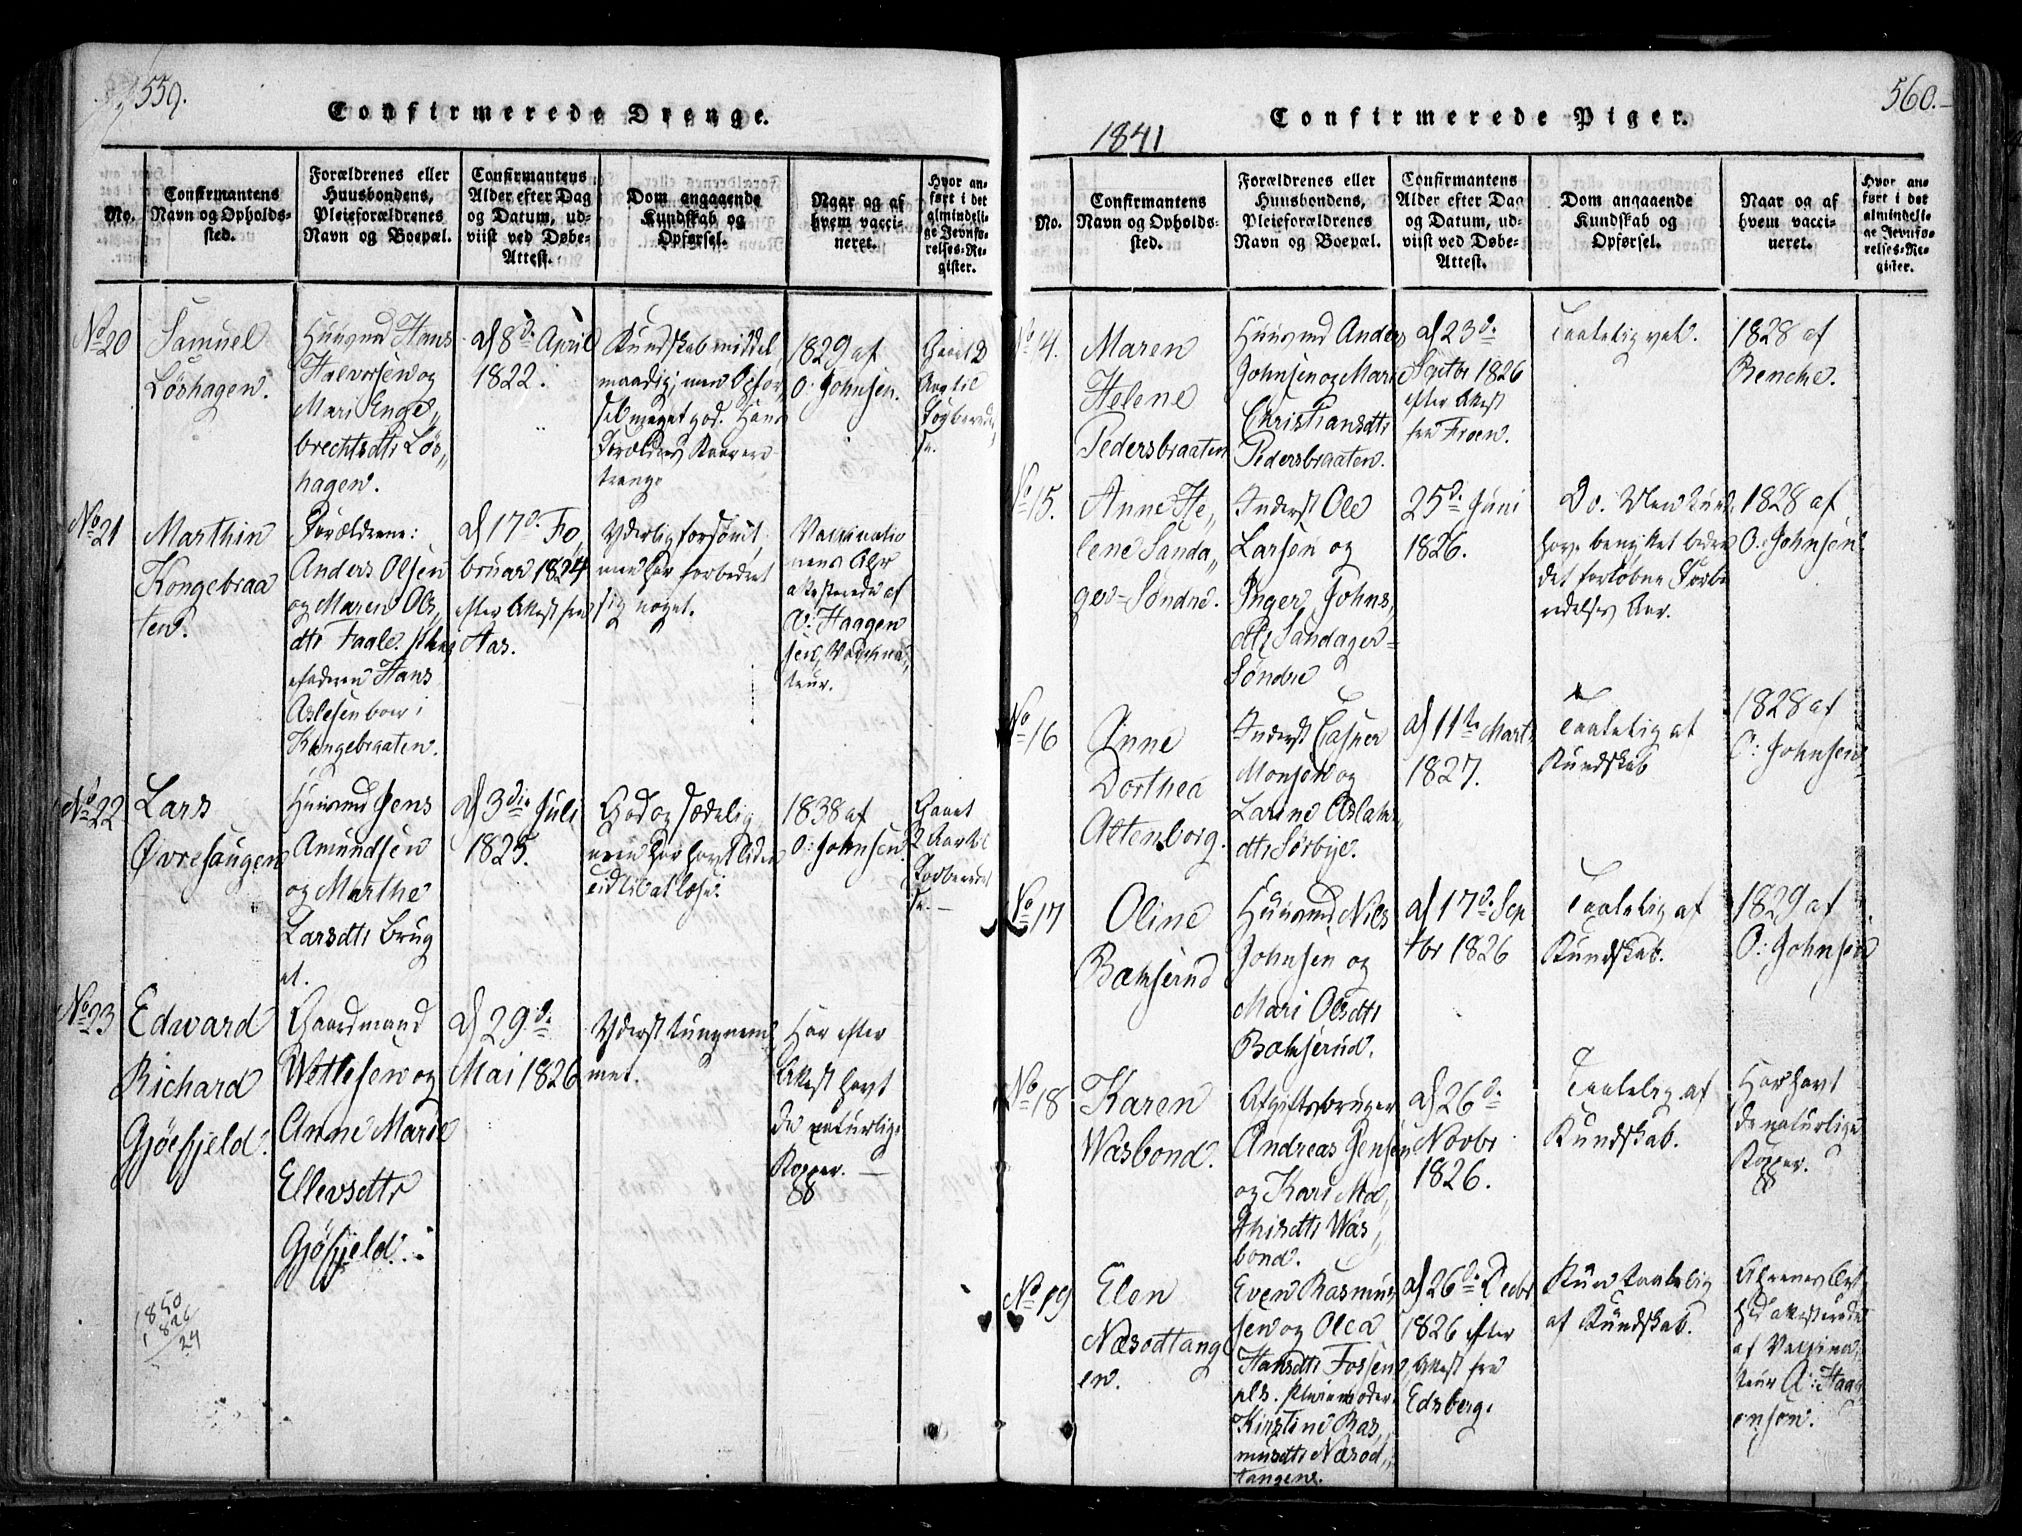 559.
Confirmerede Drenge.
No.
Confirmantens
Navn og Opholds-
sted.
Forældrenes eller
Huusbondens,
Pleieforældrenes
Navn og Boepæl.
Confirmantens
Alder efter Dag
og Datum, ud-
viist ved Døbe-
Attest.
Dom angaaende
Kundskab og
Opførsel.
Naar og af
hvem vacci-
neret.
Hvor an-
ført i det
almindeli-
ge Jevnfø-
relses-Re-
gister.
No 20
Samuel
Löshagen.
Huusmd Hans
Halvorsen og
Mari Enge„
brechtsdtr Lös„
hagen.
d 8de April
1822.
Kundskab middel
maadig; men Opfør
sel meget god. Hans
Forældres Kaar ere
trange
1829 af
O: Johnsen.
Gaaet 2
Aar til
No 21
Marthin
Kongebraa
ten.
Forældrene:
Anders Olsen
og Maren Ols„
dtr Faale.
Hans
Aslesen boer i
Kongebraaten.
d 17de Fe„
bruar 1824
efter Attest fra
Aas.
Yderlig forsömt,
men har forbedret
sig noget.
Vaccinatio
nens Aar
attesterede af
A: Haagen
sen, Vaccina„
teur.
No 22
Lars
Øvresaugen
Huusmd Jens
Amundsen
og Marthe
Larsdtr Brug
et.
d 3die Juli
1825.
God og sædelig,
men har havt liden
tid til at læse.
1838 af
O: Johnsen.
Gaaet
2 Aar til
No 23
Edward
Richard
Gjöefjeld.
Gaardmand
Wetlesen og
Anne Marie
Ellevsdtr
Gjöfjeld.
d 29de
Mai 1826
Yderst tungnem„
met.
Har efter
Attest havt
de naturlige
Kopper.
1850
1826
24
560.
Confirmerede Piger.
1841
No.
Confirmantens
Navn og Opholds-
sted.
Forældrenes eller
Huusbondens,
Pleieforældrenes
Navn og Boepæl.
Confirmantens
Alder efter Dag
og Datum, ud-
viist ved Døbe-
Attest.
Dom angaaende
Kundskab og
Opførsel.
Naar og af
hvem vacci-
neret.
Hvor an-
ført i det
almindeli-
ge Jevnfø-
relses-Re-
gister.
No 14.
Maren
Helene
Pedersbraaten
Huusmd Anders
Johnsen og Mari
Christiansdtr
Pedersbraaten.
d 23de
Septbr 1826
efter Attest
fra Froen.
Taalelig vel.
1828 af
Bencke.
No 15.
Anne He„
lene Sanda„
ger-Söndre.
Inderst Ole
Larsen og
Inger Johns„
dtr Sandager-
Söndre
25de Juni
1826.
Do. Men kunde
have benyttet bedre
det forløbne Forbe
redelses Aar.
1828 af
O: Johnsen.
No 16
Anne
Dorthea
Altenborg.
Inderst Casper
Monsen og
Larine Aslaks
dtr Sørbye.
d 11te Marts
1827.
Taalelig af
Kundskab
1828 af
O: Johnsen
No 17
Oline
Bomserud
Huusmd Niels
Johnsen og
Mari Olsdtr
Bomserud.
d 17de Sep
tbr 1826
Taalelig af
Kundskab.
1829 af
O: Johnsen
No 18
Karen
Wasbond.
Afgiftsbruger
Andreas Jensen
og Kari Ma„
thisdtr Was„
bond.
d 26de
Novbr
1826.
Taalelig af
Kundskab.
Har havt
de naturlige
Kopper.
No 19
Elen
Næsodtang
en.
Even Rasmus
sen og Olea
Hansdtr Fossen
Kirstine Ras„
musdtr Næsod„
tangene.
d 26de Decbr
1826 efter
Attest fra
Edsberg.
Kun taalelig
af Kundskab.
attesterede
af Vaccina„
teur A: Haag
ensen.